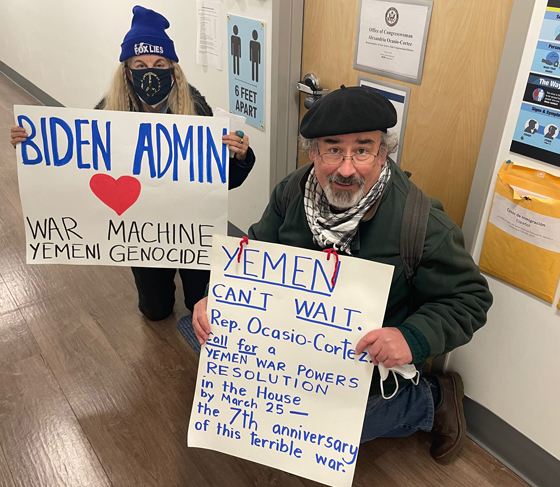 FOX LIES
BIDEN ADMIN
WAR MACHINE
YEMENI GENOCIDE
6 FEET
APART
Office of Congresswoman
Alexandria Ocasio-Cortez
The Way
Signs & Symptoms
Español
YEMEN
CAN'T WAIT.
Rep. Ocasio-Cortez:
call for a
YEMEN WAR POWERS
RESOLUTION
in the House
by March 25 —
the 7th anniversary
of this terrible war.